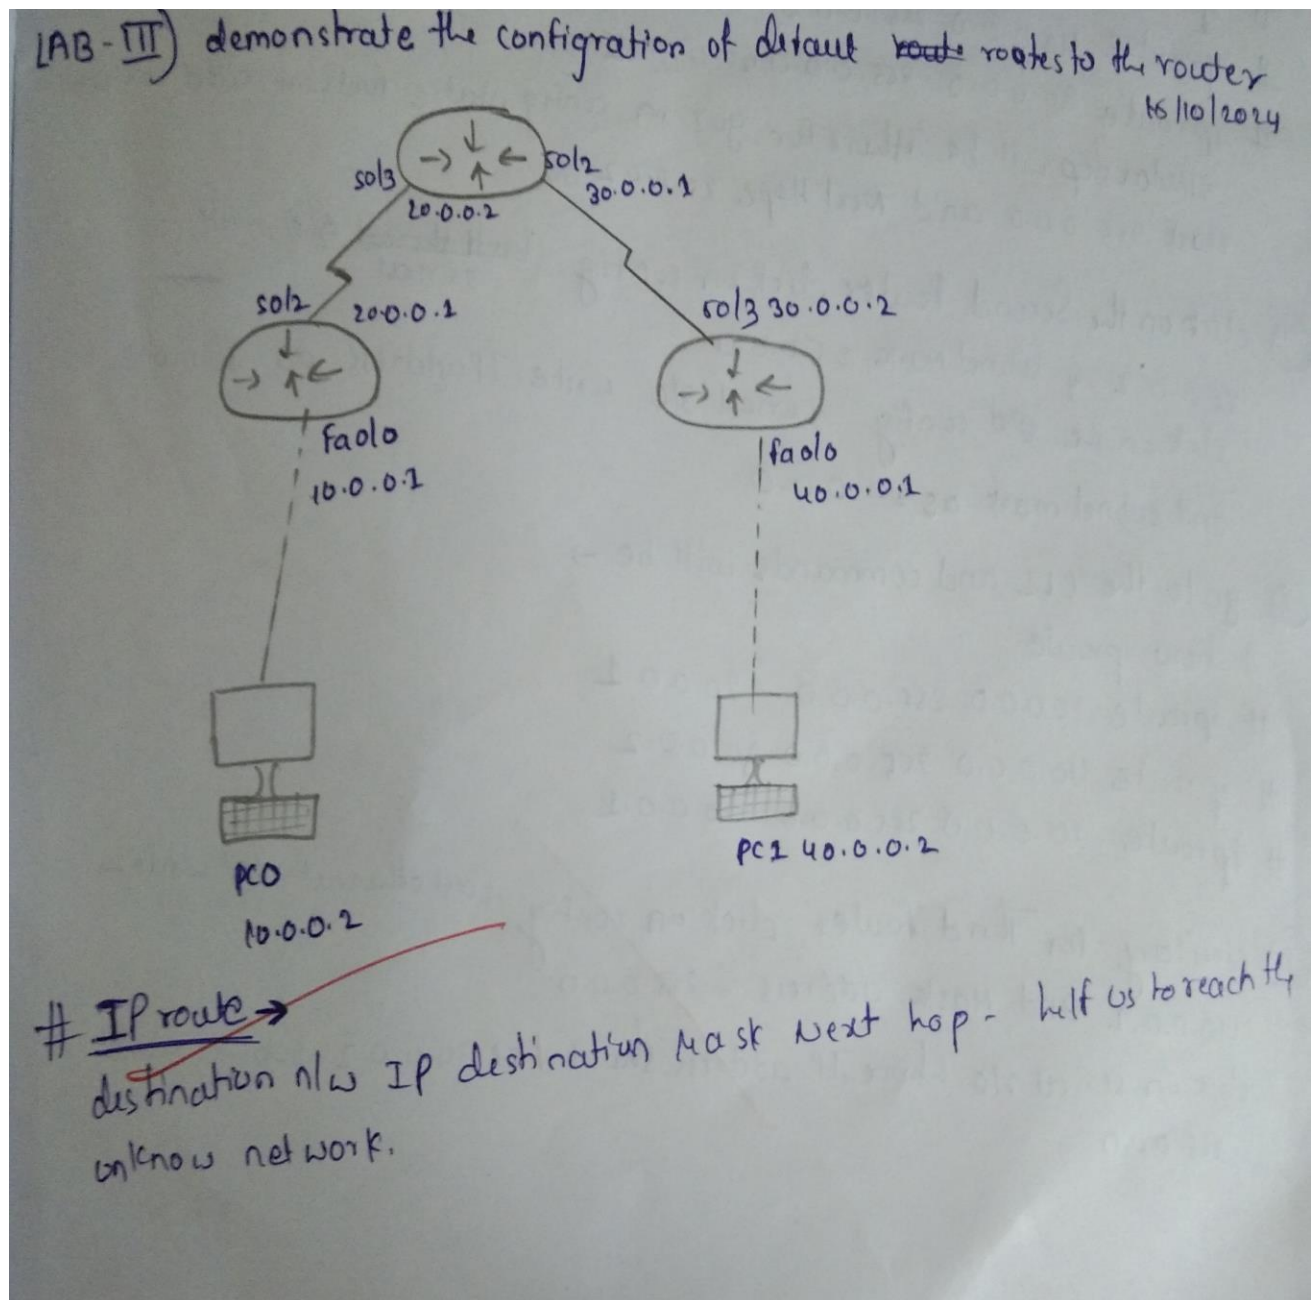 LAB-III) demonstrate the configration of defaut routes to the router
16/10/2024
so/3
so/2
30.0.0.1
20.0.0.2
so/2
20.0.0.1
so/3 30.0.0.2
fao/o
10.0.0.1
fao/o
40.0.0.1
PC1 40.0.0.2
PC0
10.0.0.2
# IP route →
destination n/w IP destination Mask Next hop - helf us to reach the
unknow network.